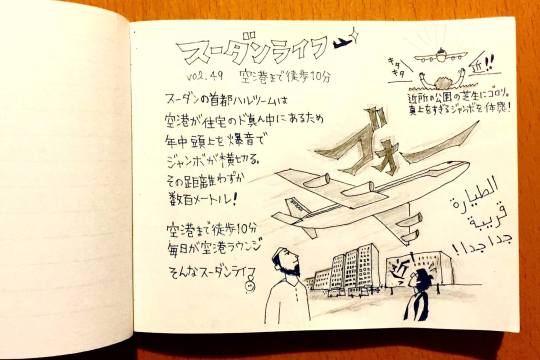 スーダンライフ
vol.49 空港まで徒歩10分
スーダンの首都ハルツームは
空港が住宅のド真ん中にあるため
年中頭上を爆音で
ジャンボが横切る。
その距離わずか
数百メートル!
空港まで徒歩10分
毎日が空港ラウンジ
そんなスーダンライフ
キタ
キタ
近!!
近所の公園の芝生にゴロリ。
真上をすぎるジャンボを体感!
ゴオー
الطيارة
قريبة
جدا جدا!
近!